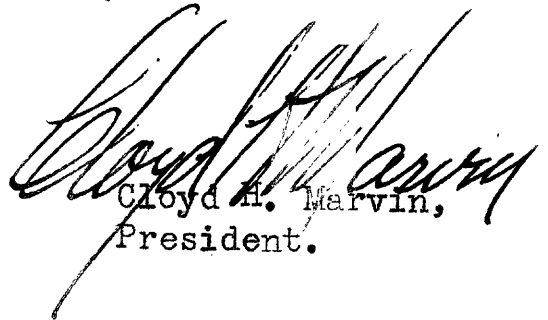 Cloyd H. Marvin
Cloyd H. Marvin,
President.